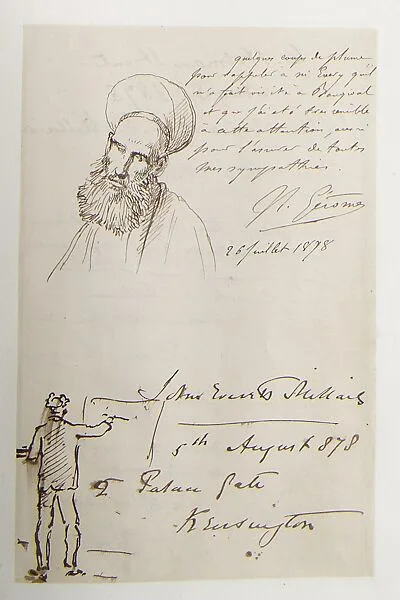 quelques coups de plume
pour rappeler à mr Every qu'il
m'a fait visite à Bougival
et que j'ai été très sensible
à cette attention, aussi
pour l'assurer de toutes
mes sympathies.
Gérome
26 Juillet 1878
John Everett Millais
5th August 878
2 Palace Gate
Kensington